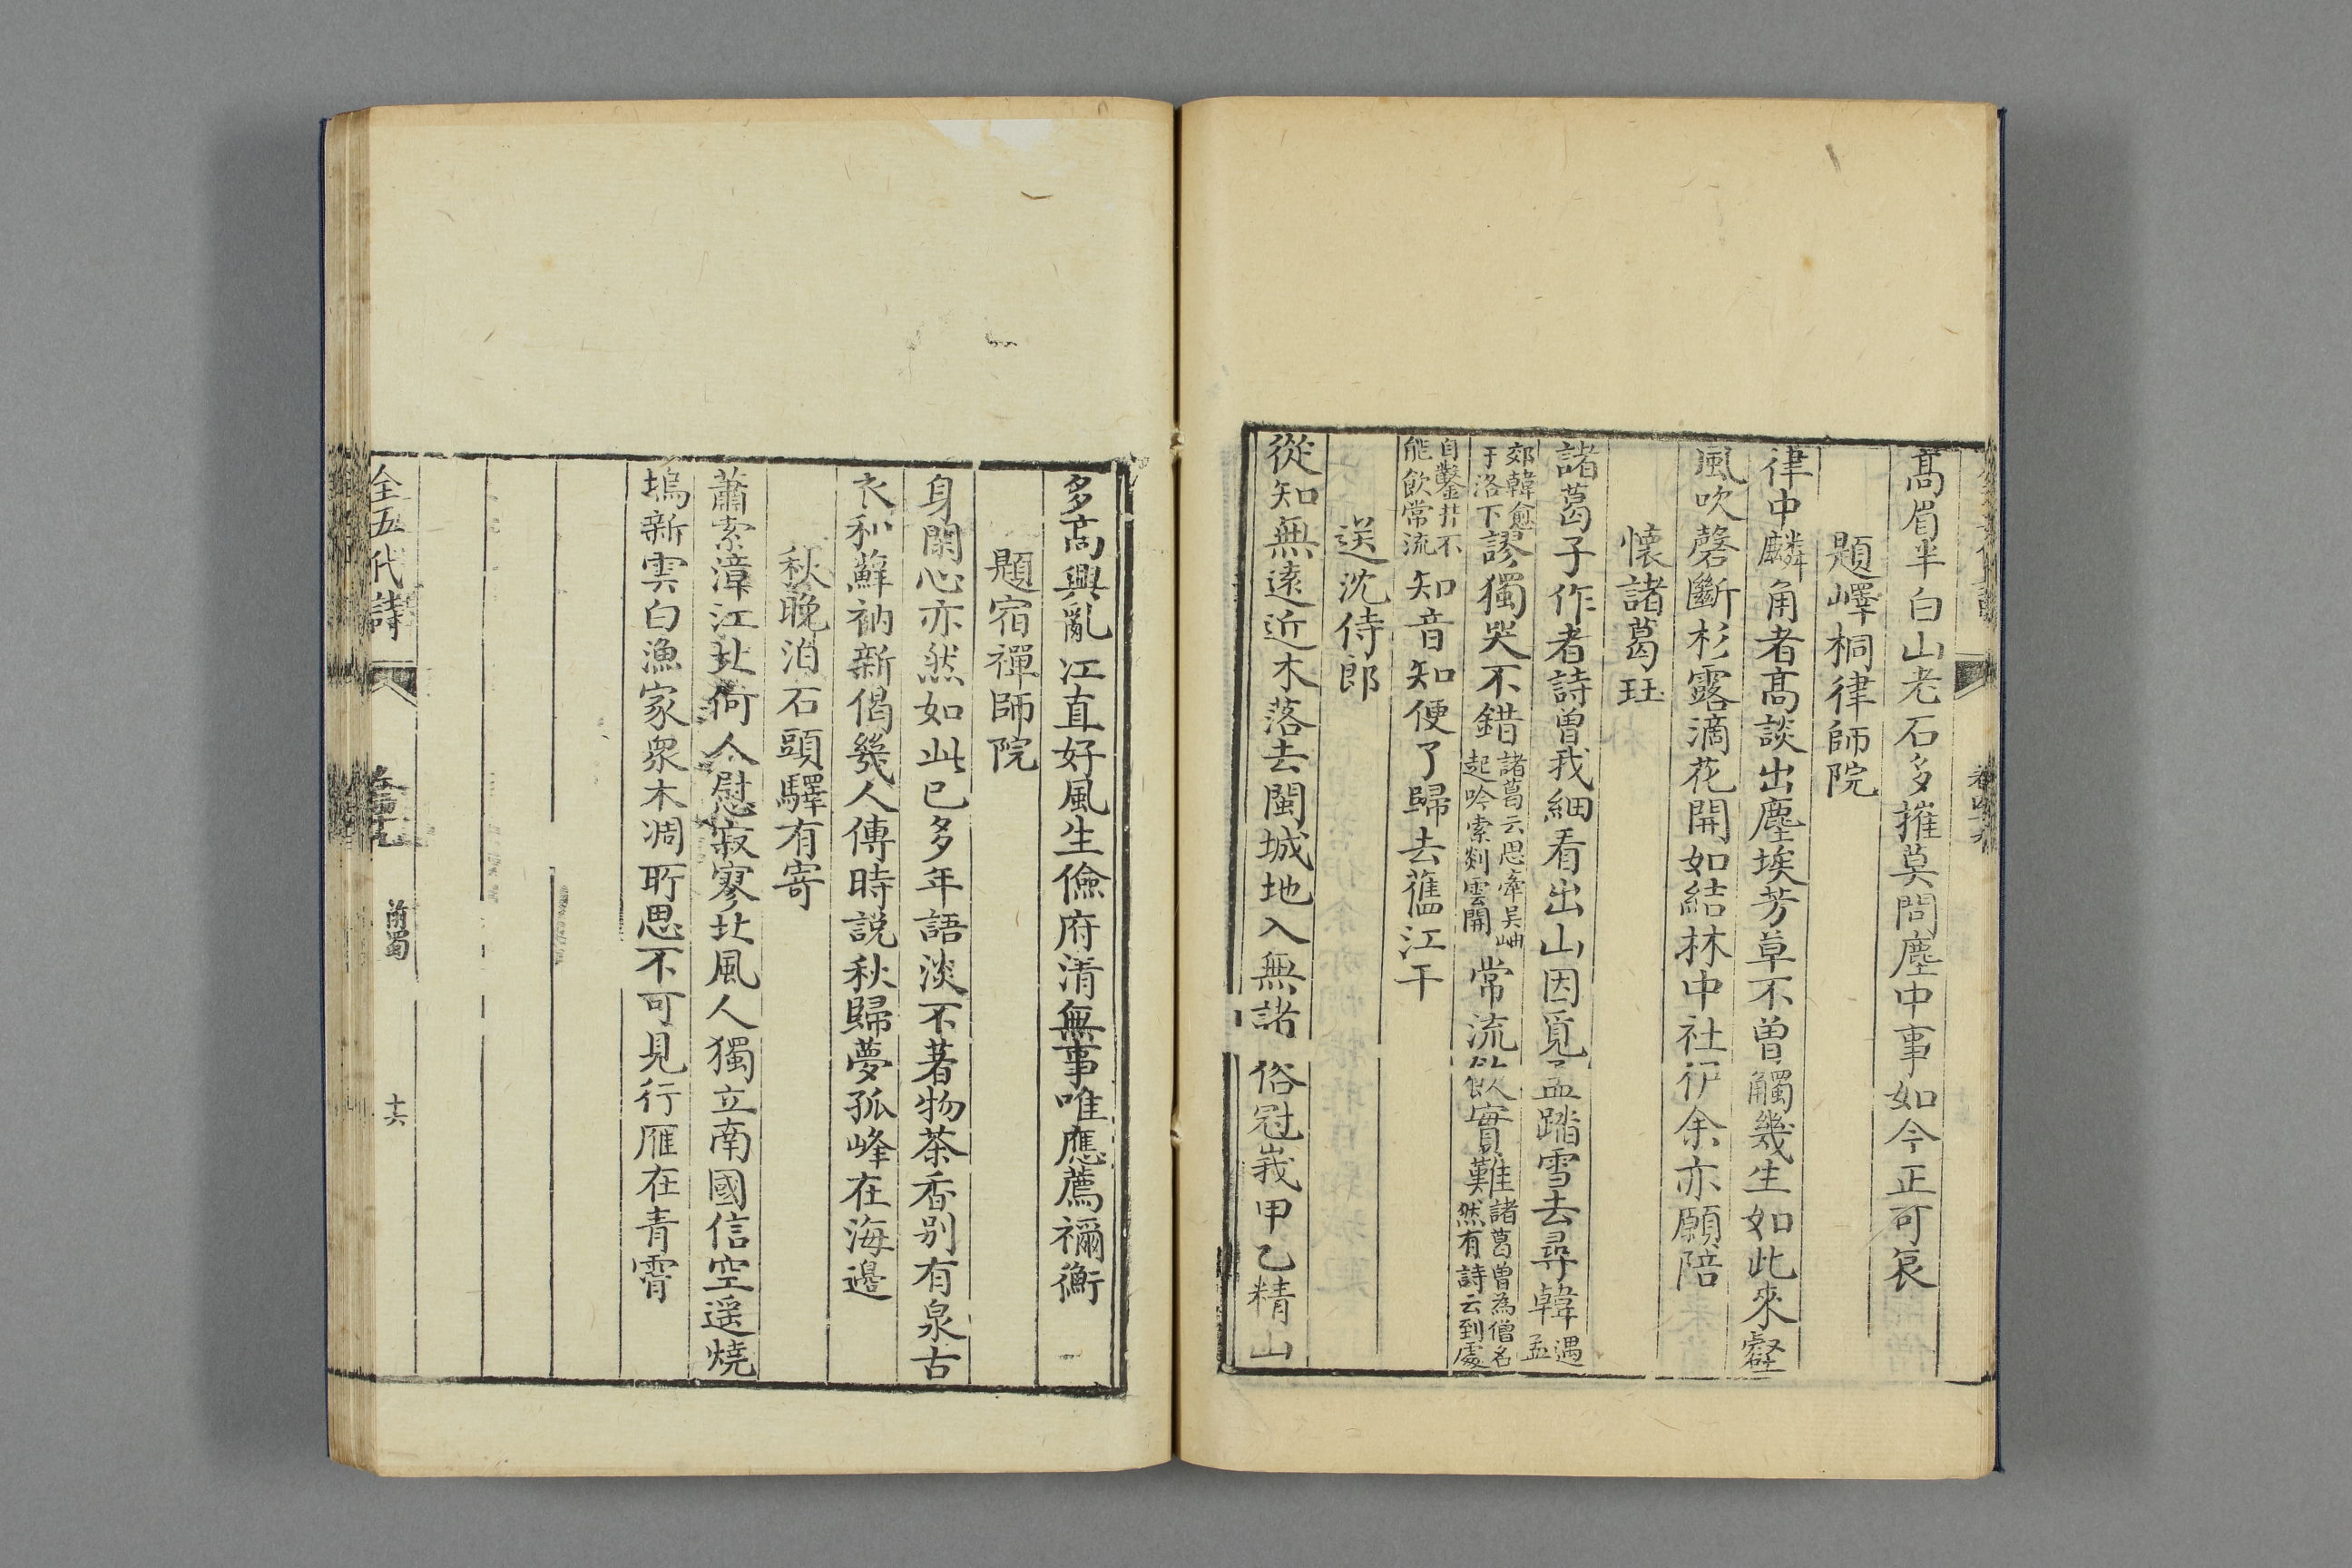 高眉半白山老石多摧莫問塵中事如今正可哀
題嶧桐律師院
律中麟角者高談出塵埃芳草不曾觸幾生如此來壑
風吹磬斷杉露滴花開如結林中社伊余亦願陪
懷諸葛珏
諸葛子作者詩曾我細看出山因覓孟踏雪去尋韓遇孟
郊韓愈于洛下謬獨哭不錯諸葛云思牽吳岫起吟索剡雲開常流飲實難諸葛曾為僧名然有詩云到處
自鑿井不能飲常流知音知便了歸去舊江干
送沈侍郎
從知無遠近木落去閩城地入無諸俗冠峩甲乙精山
多高興亂江直好風生儉府清無事唯應薦禰衡
題宿禪師院
身閒心亦然如此已多年語淡不著物茶香別有泉古
衣和蘚衲新偈幾人傳時説秋歸夢孤峰在海邊
秋晚泊石頭驛有寄
蕭索漳江北何人慰寂寥北風人獨立南國信空遥燒
塢新雲白漁家衆木凋所思不可見行雁在青霄
全五代詩
前蜀
十六